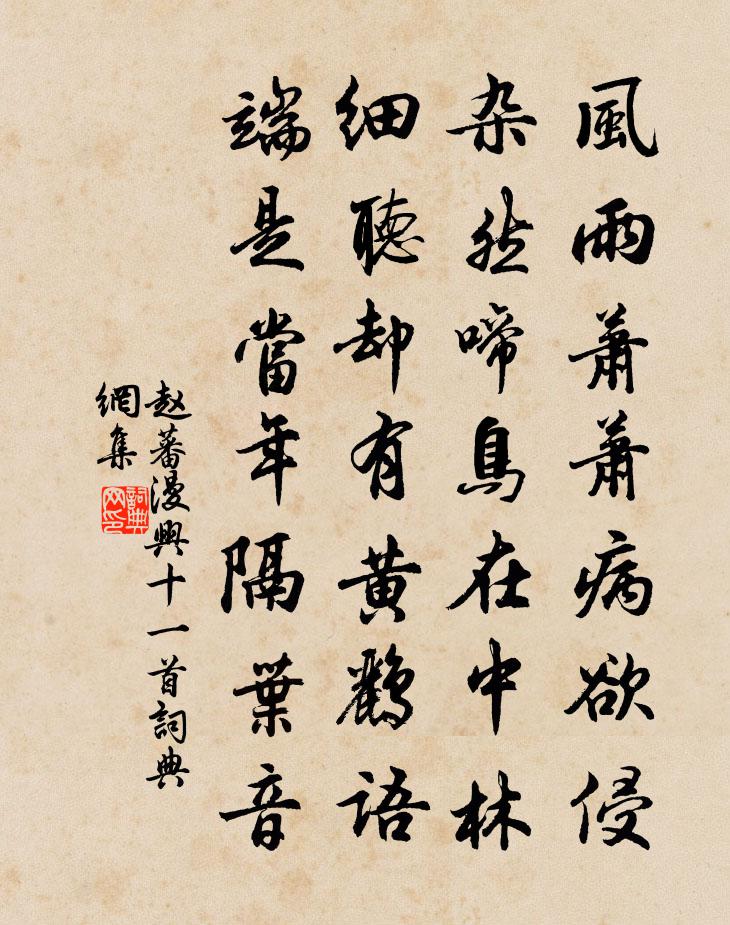 風雨蕭蕭病欲侵
杂然啼鳥在中林
细聽却有黄鸝语
端是當年隔葉音
赵蕃漫興十一首詞典
網集
詞典
网印